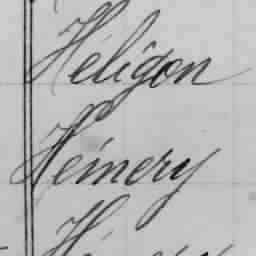 Héligon
Hémery